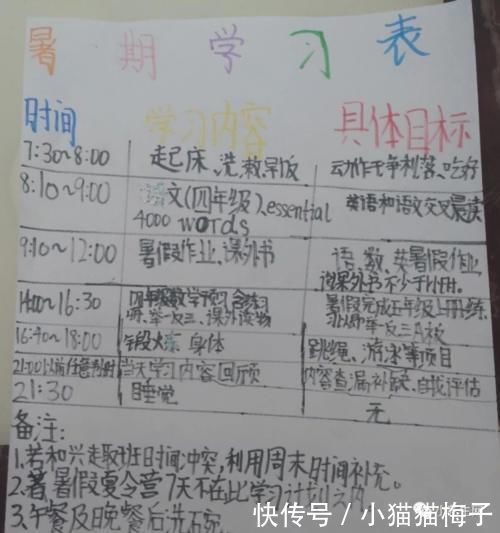 暑期学习表
时间 学习内容 具体目标
7:30~8:00 起床、洗漱、早饭 动作干净利落、吃好
8:10~9:00 语文(四年级)、essential 英语和语文交叉晨读
4000 words
9:10~12:00 暑假作业、课外书 语、数、英暑假作业
课外书不少于
14:00~16:30 四年级数学预习 练习 暑假完成五年级上册练
举一反三、课外读物 习以及举一反三A板
16:40~18:00 身体 跳绳、游泳等项目
21:00以前任意 当天学习内容回顾 内容查漏补缺、自我评估
21:30 睡觉 无
备注:
1.若和兴趣班时间冲突,利用周末时间补充。
2.暑假夏令营7天不在此学习计划之内
3.午餐及晚餐后洗碗
快传号 / 小猫猫梅子